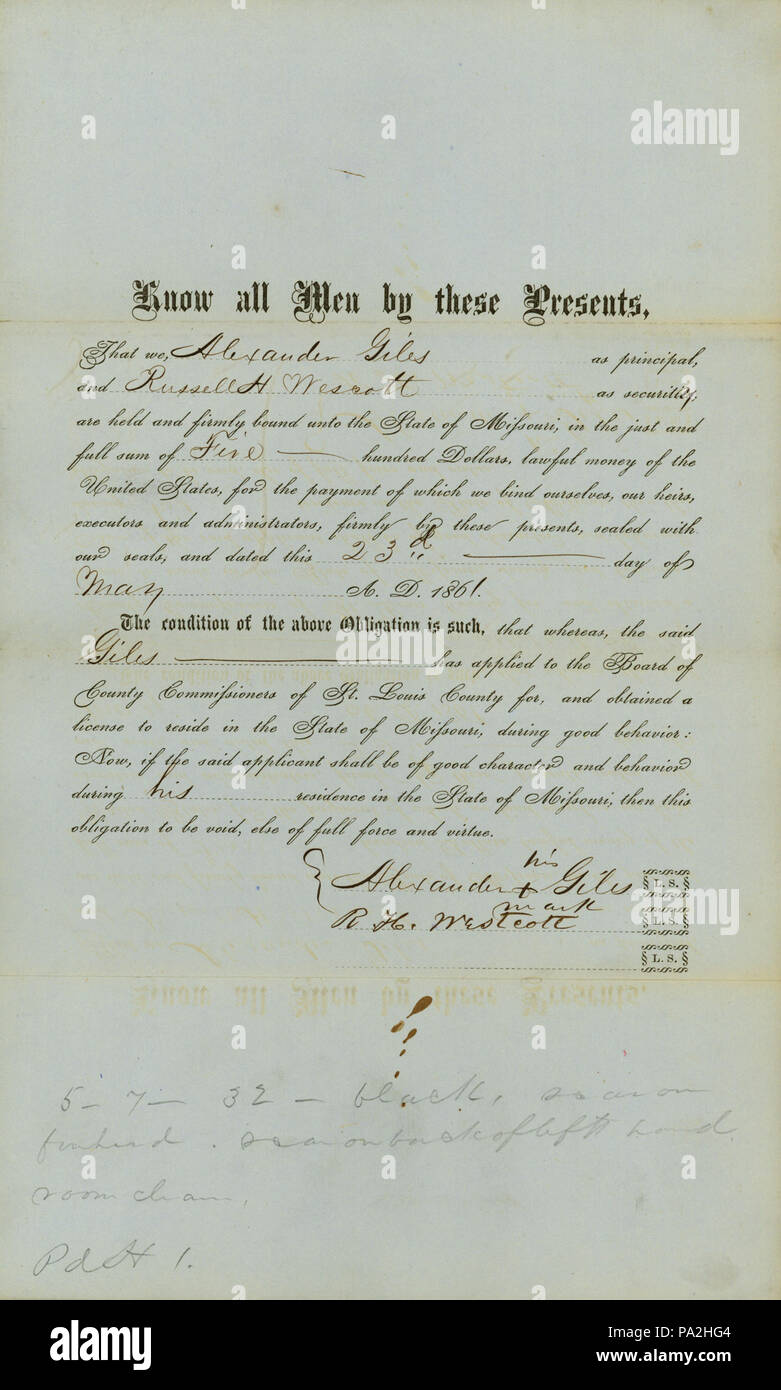 Know all Men by these Presents,
That we, Alexander Giles as principal,
and Russell H Wescott as security,
are held and firmly bound unto the State of Missouri, in the just and
full sum of Five hundred Dollars, lawful money of the
United States, for the payment of which we bind ourselves, our heirs,
executors and administrators, firmly by these presents, sealed with
our seals, and dated this 23d day of
May A. D. 1861.
The condition of the above Obligation is such, that whereas, the said
Giles has applied to the Board of
County Commissioners of St. Louis County for, and obtained a
license to reside in the State of Missouri, during good behavior:
Now, if the said applicant shall be of good character and behavior
during his residence in the State of Missouri, then this
obligation to be void, else of full force and virtue.
his
Alexander + Giles L. S.
mark
R. H. Westcott L. S.
L. S.
5 - 7 - 32 - black, scar on
forehead . scar on back of left hand
room clean,
Pd H 1.
alamy
alamy
alamy
alamy
Image ID: PA2HG4
www.alamy.com